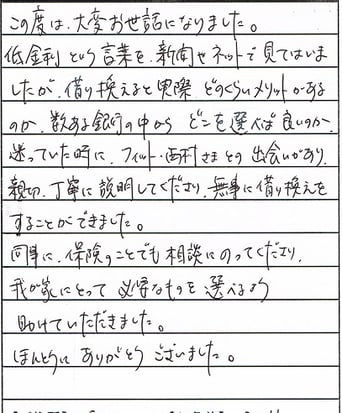 この度は、大変お世話になりました。
低金利という言葉を、新聞やネットで見てはいま
したが、借り換えると実際どのぐらいメリットがある
のか、数ある銀行の中からどこを選べば良いのか、
迷っていた時に、フィット・西村さまとの出会いがあり、
親切、丁寧に説明してくださり、無事に借り換えを
することができました。
同時に、保険のことでも相談にのってくださり、
我が家にとって必要なものを選べるよう
助けていただきました。
ほんとうにありがとうございました。